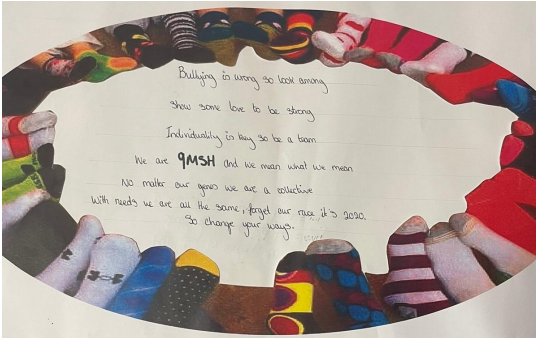 Bullying is wrong so look among
show some love to be strong
Individuality is key so be a team
We are 9MSH and we mean what we mean
No matter our genes we are a collective
With needs we are all the same, forget our race it's 2020.
So change your ways.